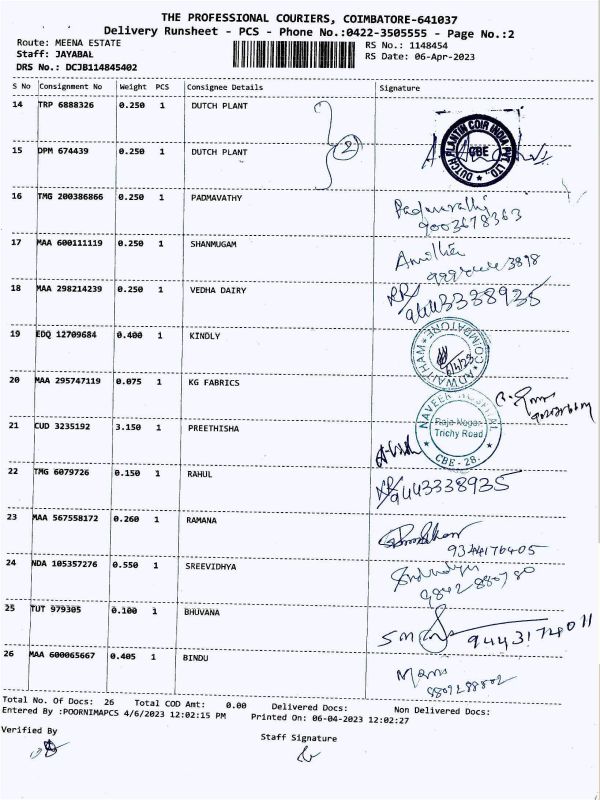 THE PROFESSIONAL COURIERS, COIMBATORE-641037
Delivery Runsheet - PCS - Phone No.:0422-3505555 - Page No.:2
Route: MEENA ESTATE RS No.: 1148454
Staff: JAYABAL RS Date: 06-Apr-2023
DRS No.: DCJB114845402
S No Consignment No Weight PCS Consignee Details Signature
14 TRP 6888326 0.250 1 DUTCH PLANT
2
DUTCH PLANTIN COIR INDIA PVT LTD
CBE
15 DPM 674439 0.250 1 DUTCH PLANT
16 TMG 200386866 0.250 1 PADMAVATHY
9003678363
17 MAA 600111119 0.250 1 SHANMUGAM
18 MAA 298214239 0.250 1 VEDHA DAIRY
9443338935
19 EDQ 12709684 0.400 1 KINDLY
COIMBATORE
20 MAA 295747119 0.075 1 KG FABRICS
21 CUD 3235192 3.150 1 PREETHISHA
NAVEEN HOSPITAL
Raja Nagar
Trichy Road
CBE - 28.
22 TMG 6079726 0.150 1 RAHUL
9443338935
23 MAA 567558172 0.260 1 RAMANA
9344176405
24 NDA 105357276 0.550 1 SREEVIDHYA
9842 880780
25 TUT 979305 0.100 1 BHUVANA
26 MAA 600065667 0.405 1 BINDU
Total No. Of Docs: 26 Total COD Amt: 0.00 Delivered Docs: Non Delivered Docs:
Entered By :POORNIMAPCS 4/6/2023 12:02:15 PM Printed On: 06-04-2023 12:02:27
Verified By
Staff Signature